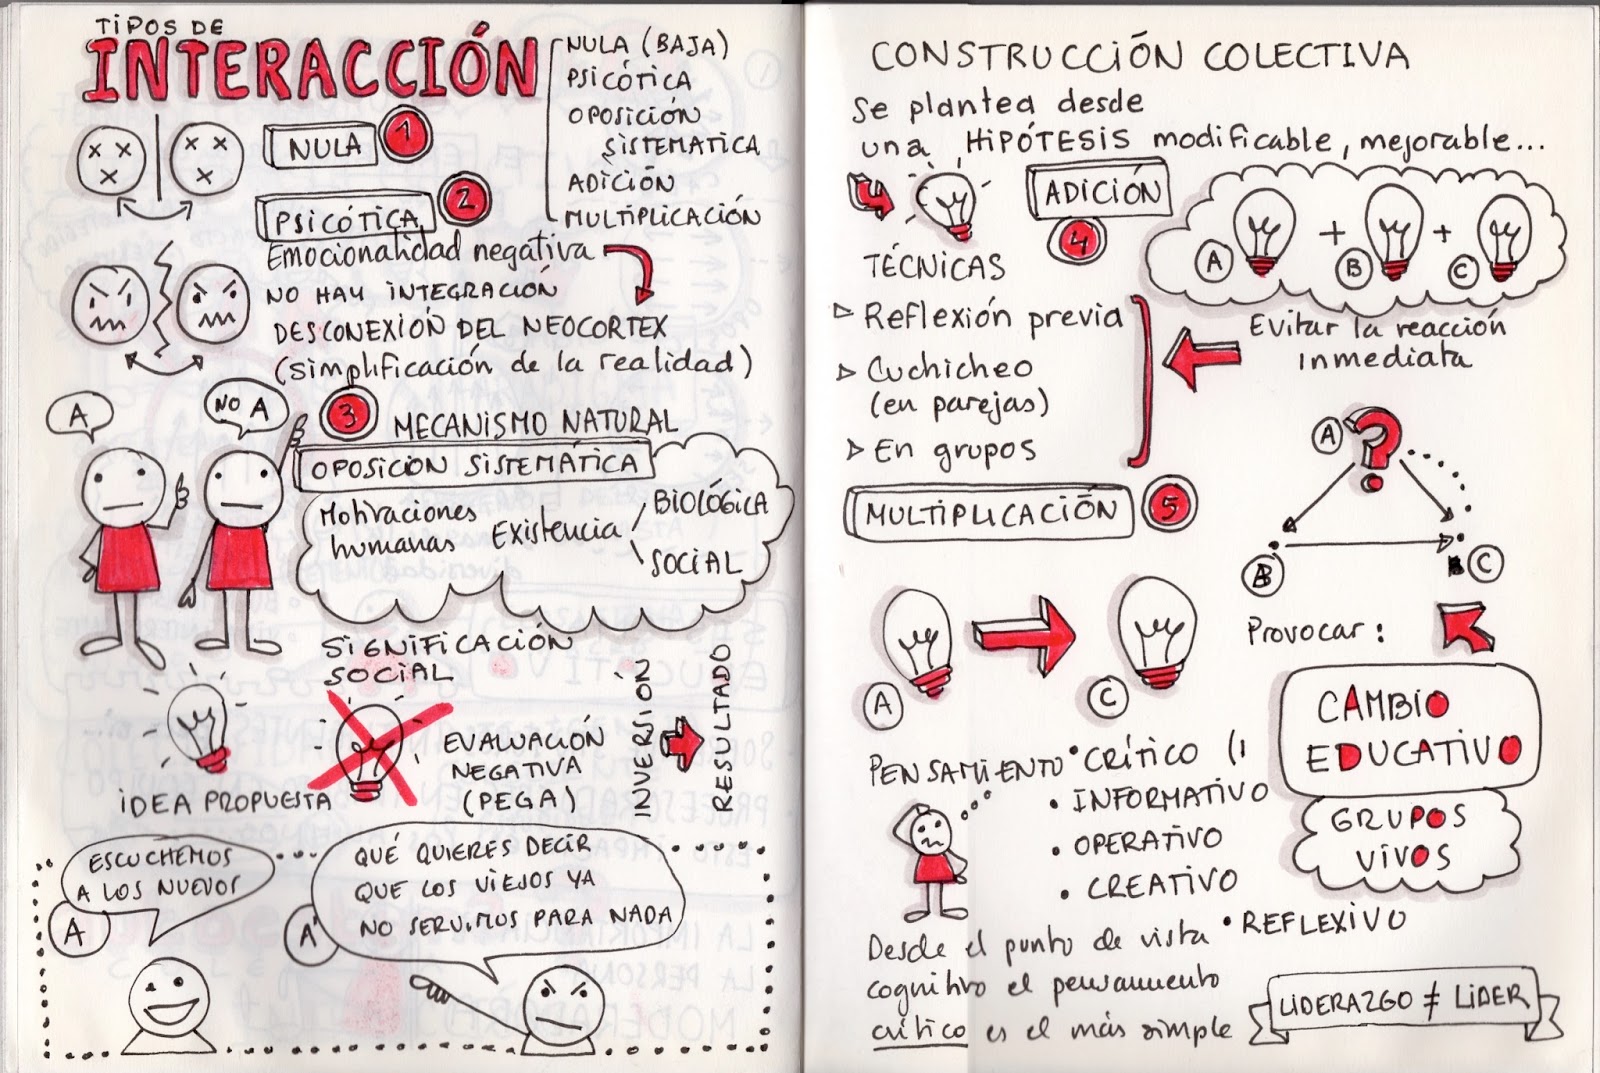 TIPOS DE
INTERACCIÓN
NULA (BAJA)
PSICÓTICA
OPOSICIÓN
SISTEMATICA
ADICIÓN
MULTIPLICACIÓN
NULA 1
PSICÓTICA 2
Emocionalidad negativa
NO HAY INTEGRACIÓN
DESCONEXIÓN DEL NEOCORTEX
(simplificación de la realidad)
A
NO A
3 MECANISMO NATURAL
OPOSICION SISTEMÁTICA
Motivaciones
humanas
Existencia
BIOLÓGICA
SOCIAL
SIGNIFICACIÓN
SOCIAL
IDEA PROPUESTA
EVALUACIÓN
NEGATIVA
(PEGA)
INVERSIÓN
RESULTADO
ESCUCHEMOS
A LOS NUEVOS
A
QUÉ QUIERES DECIR
QUE LOS VIEJOS YA
NO SERVIMOS PARA NADA
A'
CONSTRUCCIÓN COLECTIVA
Se plantea desde
una HIPÓTESIS modificable, mejorable...
ADICIÓN
4
A + B + C
Evitar la reacción
inmediata
TÉCNICAS
Reflexión previa
Cuchicheo
(en parejas)
En grupos
MULTIPLICACIÓN 5
A
?
B
C
Provocar:
A
C
CAMBIO
EDUCATIVO
GRUPOS
VIVOS
PENSAMIENTO • CRÍTICO (1
• INFORMATIVO
• OPERATIVO
• CREATIVO
• REFLEXIVO
Desde el punto de vista
cognitivo el pensamiento
crítico es el más simple
LIDERAZGO ≠ LIDER